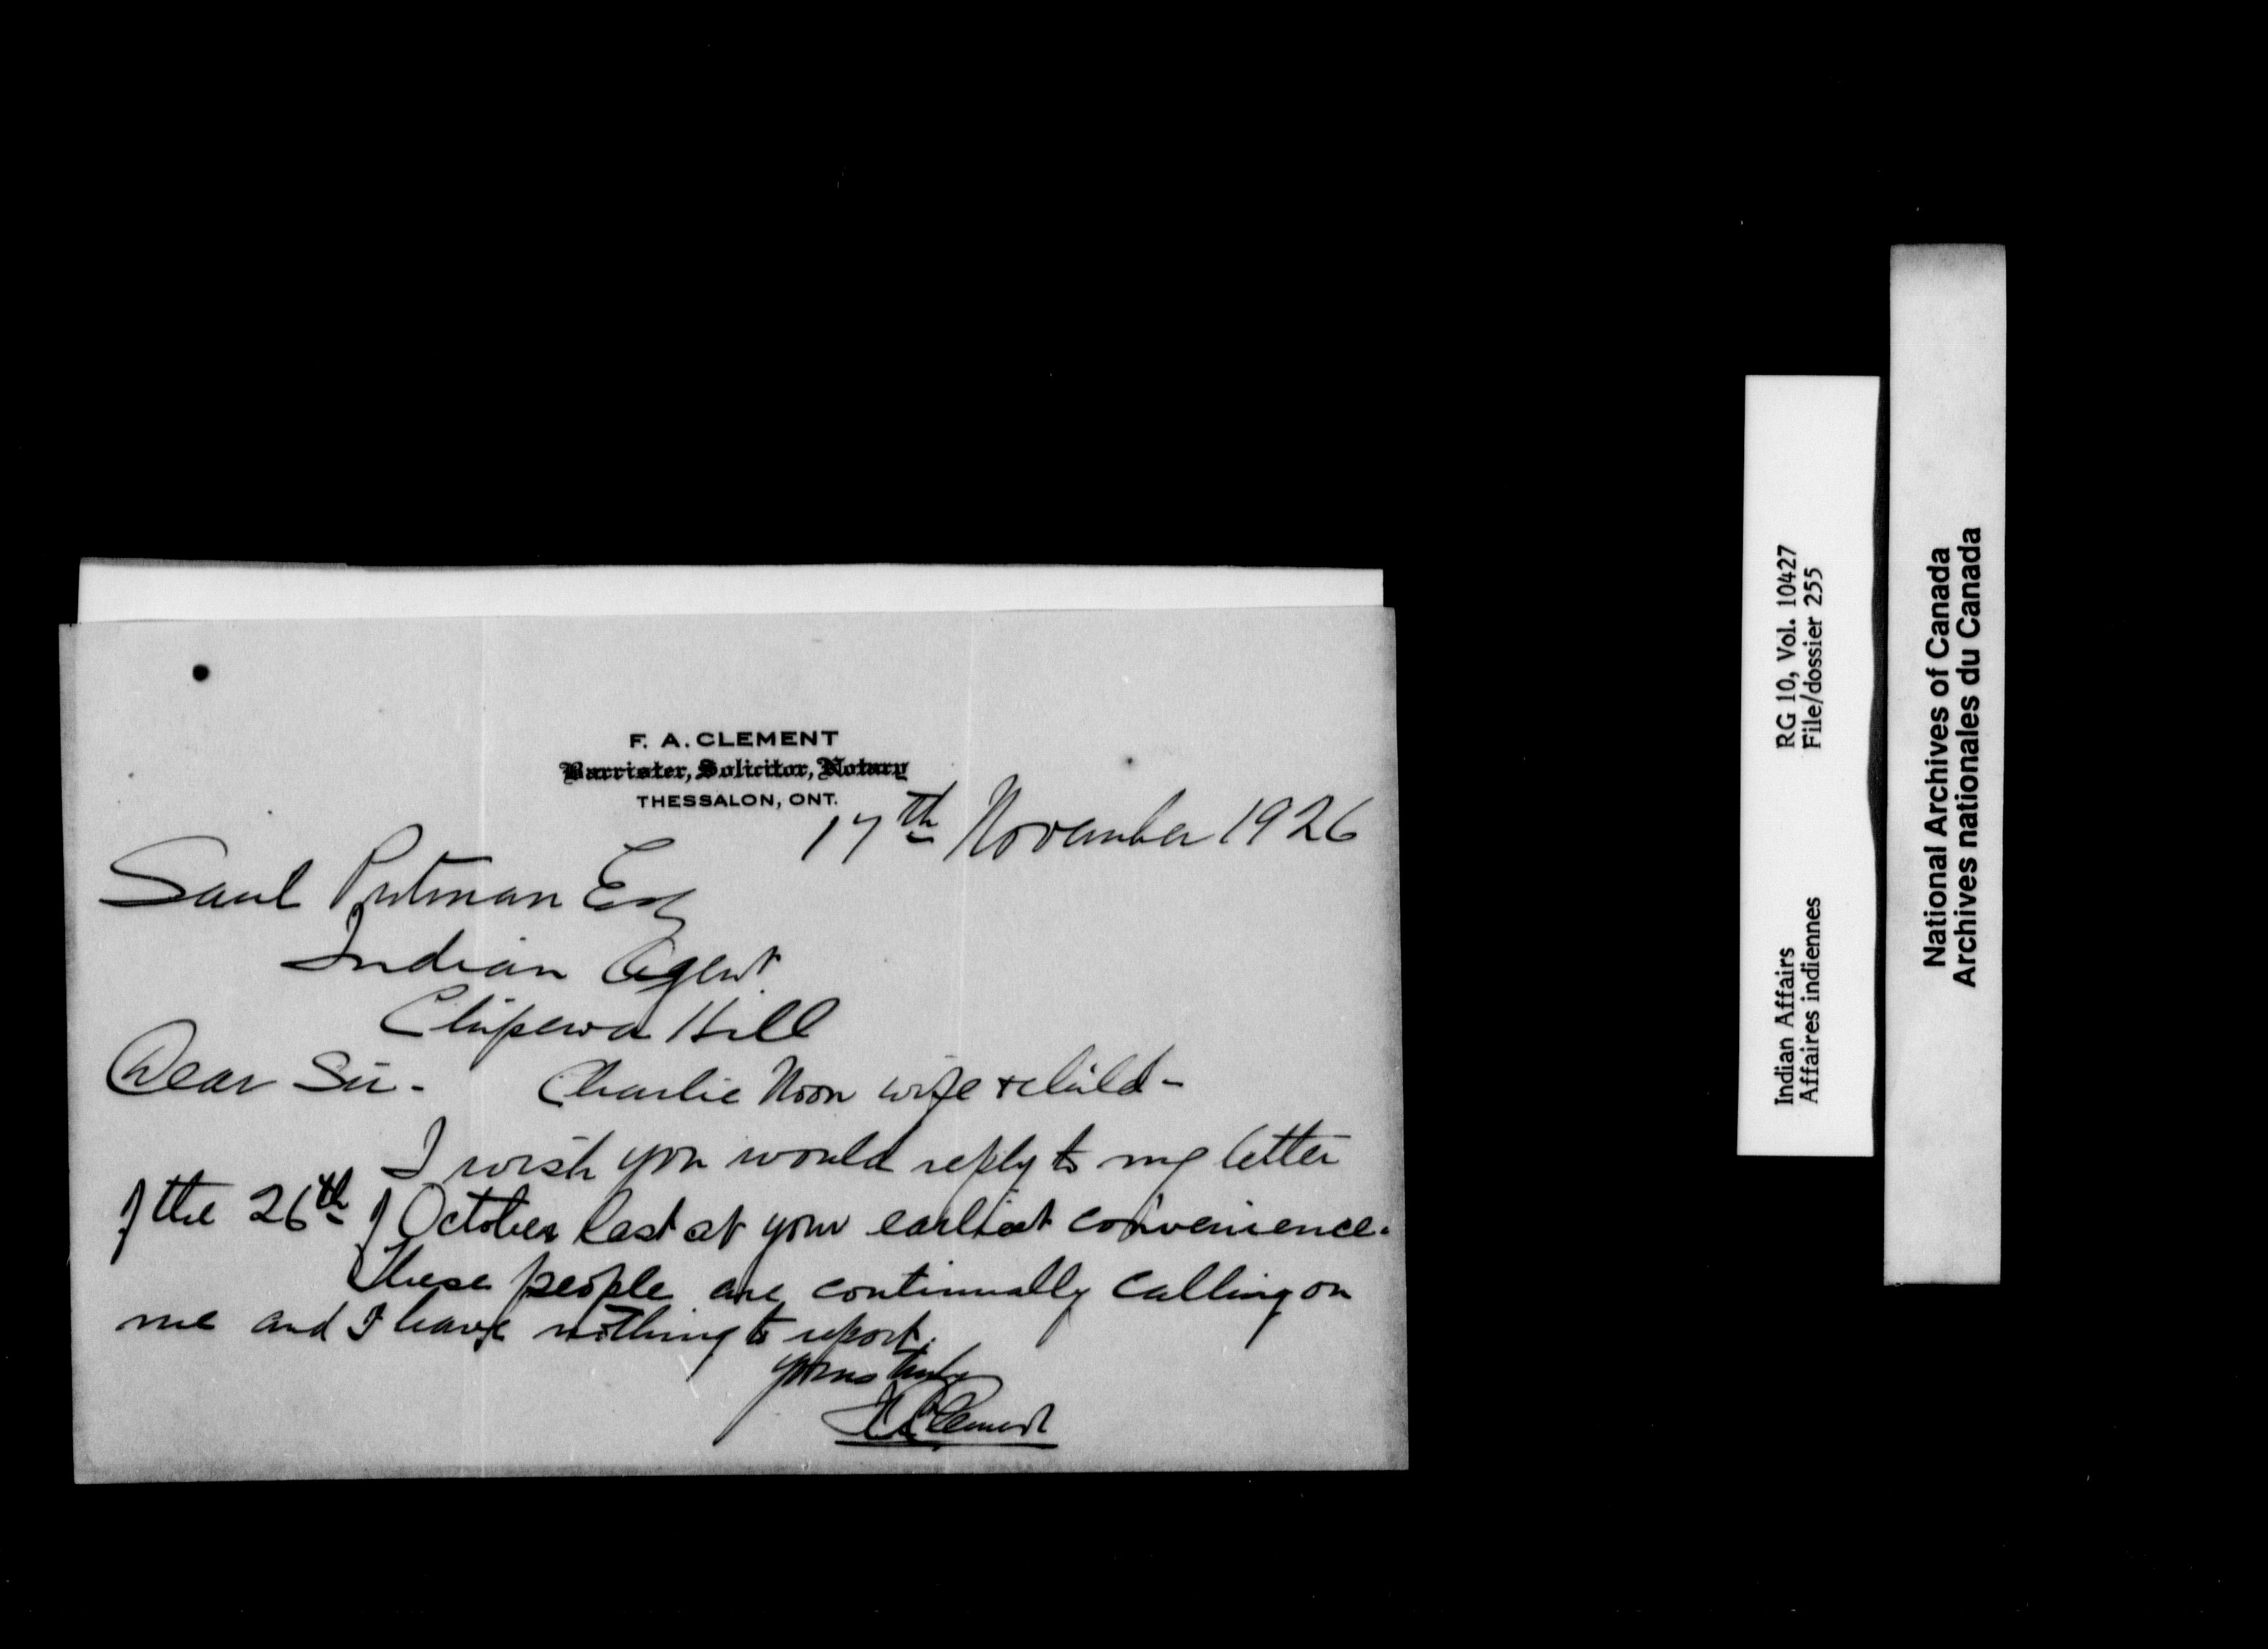 F. A. CLEMENT
Barrister, Solicitor, Notary
THESSALON, ONT.
17th November 1926
Saul Putman Esq
Indian Agent
Chipewa Hill
Dear Sir - Charlie Noon wife & child -
I wish you would reply to my letter
of the 26th of October last at your earliest convenience.
These people are continually calling on
me and I have nothing to report.
Yours truly
F A Clement
Indian Affairs RG 10, Vol. 10427
Affaires indiennes File/dossier 255
National Archives of Canada
Archives nationales du Canada